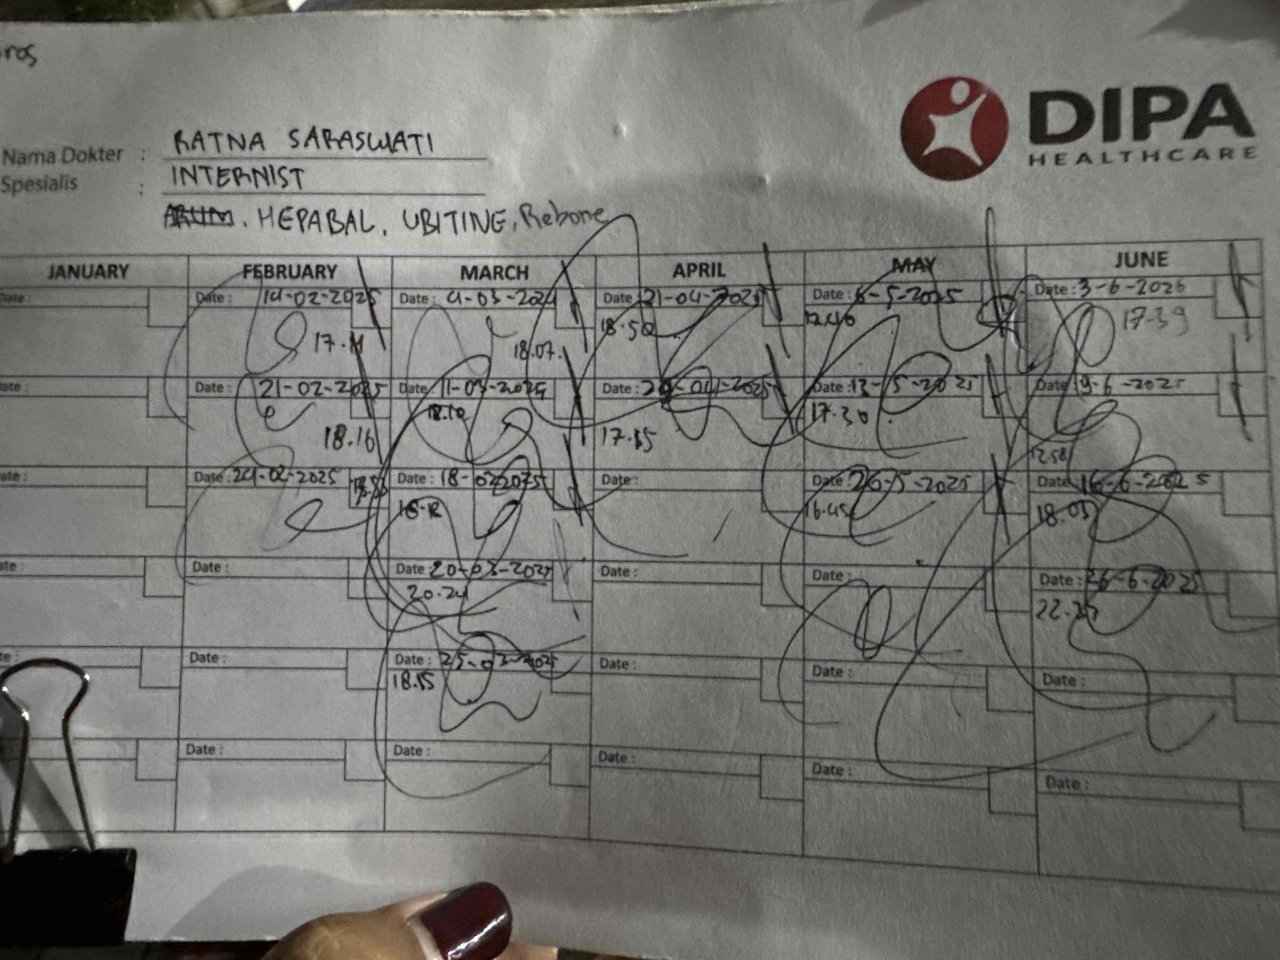 ros
DIPA
HEALTHCARE
Nama Dokter : RATNA SARASWATI
Spesialis : INTERNIST
HEPABAL, UBITINE, Rebone
JANUARY FEBRUARY MARCH APRIL MAY JUNE
Date: Date: 14-02-2025 Date: 4-03-202 Date: 21-04-2025 Date: 6-5-2025 Date: 3-6-2025
17. 18.07. 18.50 12.40 17.39
Date: Date: 21-02-2025 Date: 11-03-2025 Date: 29-04-2025 Date: 13-5-2025 Date: 9-6-2025
18.16 18.10 17.35 17.30 12.58
Date: Date: 24-02-2025 Date: 18-0 2025 Date: Date: 26-5-2025 Date: 16-6-2025
18.12 16.45 18.03
Date: Date: Date: 20-03-2025 Date: Date: Date: 26-6-2025
20.24 22.27
Date: Date: Date: 25-03-2025 Date: Date: Date:
18.55
Date: Date: Date: Date: Date: